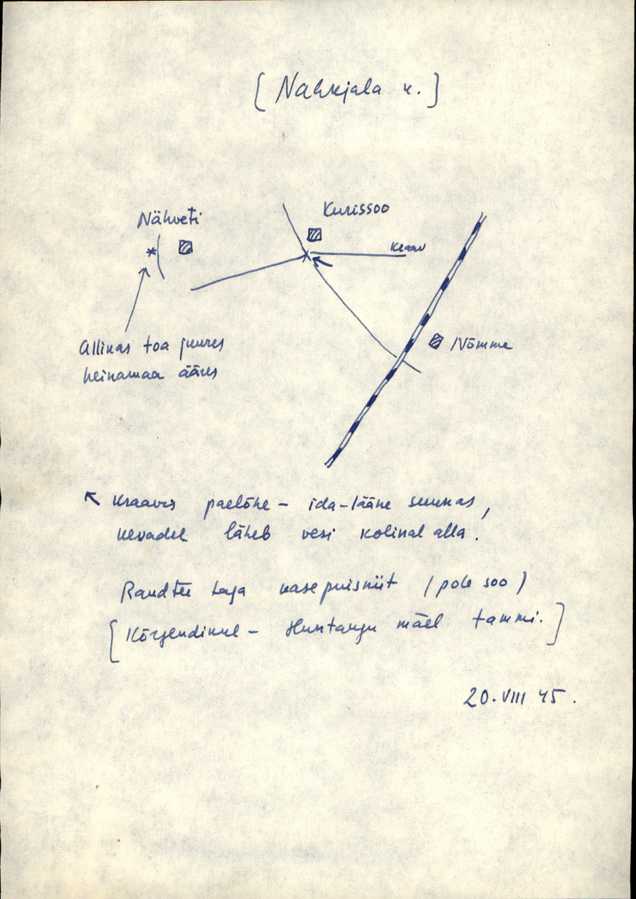 [Nahkjala k.]
Nähveti
Kurissoo
Kraav
Nõmme
Allikas toa juures
heinamaa ääres
Kraavis paelõhe - ida-lääne suunas,
kevadel läheb vesi kolinal alla.
Raudtee taga kase puisniit (pole soo)
[Kõrgendikul - Huntaugu mäel tammi.]
20.VIII 45.